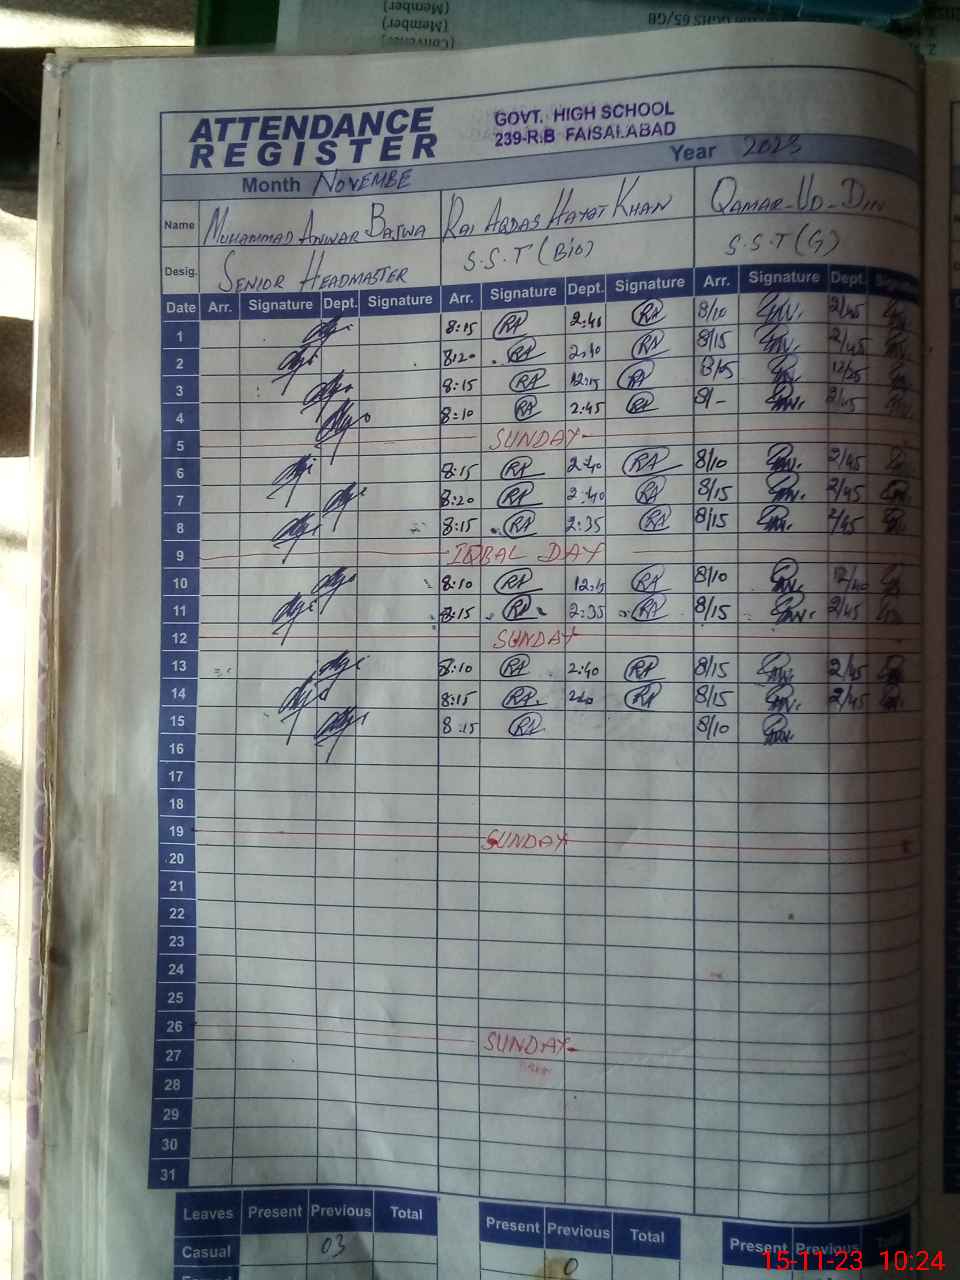 (Member)
(Member)
(Convener)
ATTENDANCE
REGISTER
GOVT. HIGH SCHOOL
239-R.B FAISALABAD
Year 2023
Month NOVEMBE
Name MUHAMMAD ANWAR BAJWA RAI AQDAS HAYAT KHAN QAMAR-UD-DIN
Desig. SENIOR HEADMASTER S.S.T (BIO) S.S.T (G)
Date Arr. Signature Dept. Signature Arr. Signature Dept. Signature Arr. Signature Dept.
1 8:15 RA RA 8/10 2/45
2 8:20 RA 2:40 RA 8/15 2/45
3 8:15 RA 12:15 RA
4 8:10 RA 2:45 RA 8/- 2/45
5 SUNDAY
6 8:15 RA 2:40 RA 8/10 2/45
7 8:20 RA 2:40 RA 8/15 2/45
8 8:15 RA 2:35 RA 8/15 2/45
9 IQBAL DAY
10 8:10 RA 12:15 RA 8/10
11 8:15 RA 2:35 RA 8/15 2/45
12 SUNDAY
13 8:10 RA 2:40 RA 8/15 2/45
14 8:15 RA RA 8/15 2/45
15 8:15 RA 8/10
16
17
18
19 SUNDAY
20
21
22
23
24
25
26
SUNDAY
27
28
29
30
31
Leaves Present Previous Total Present Previous Total Present Previous Total
Casual 03 0
15-11-23 10:24